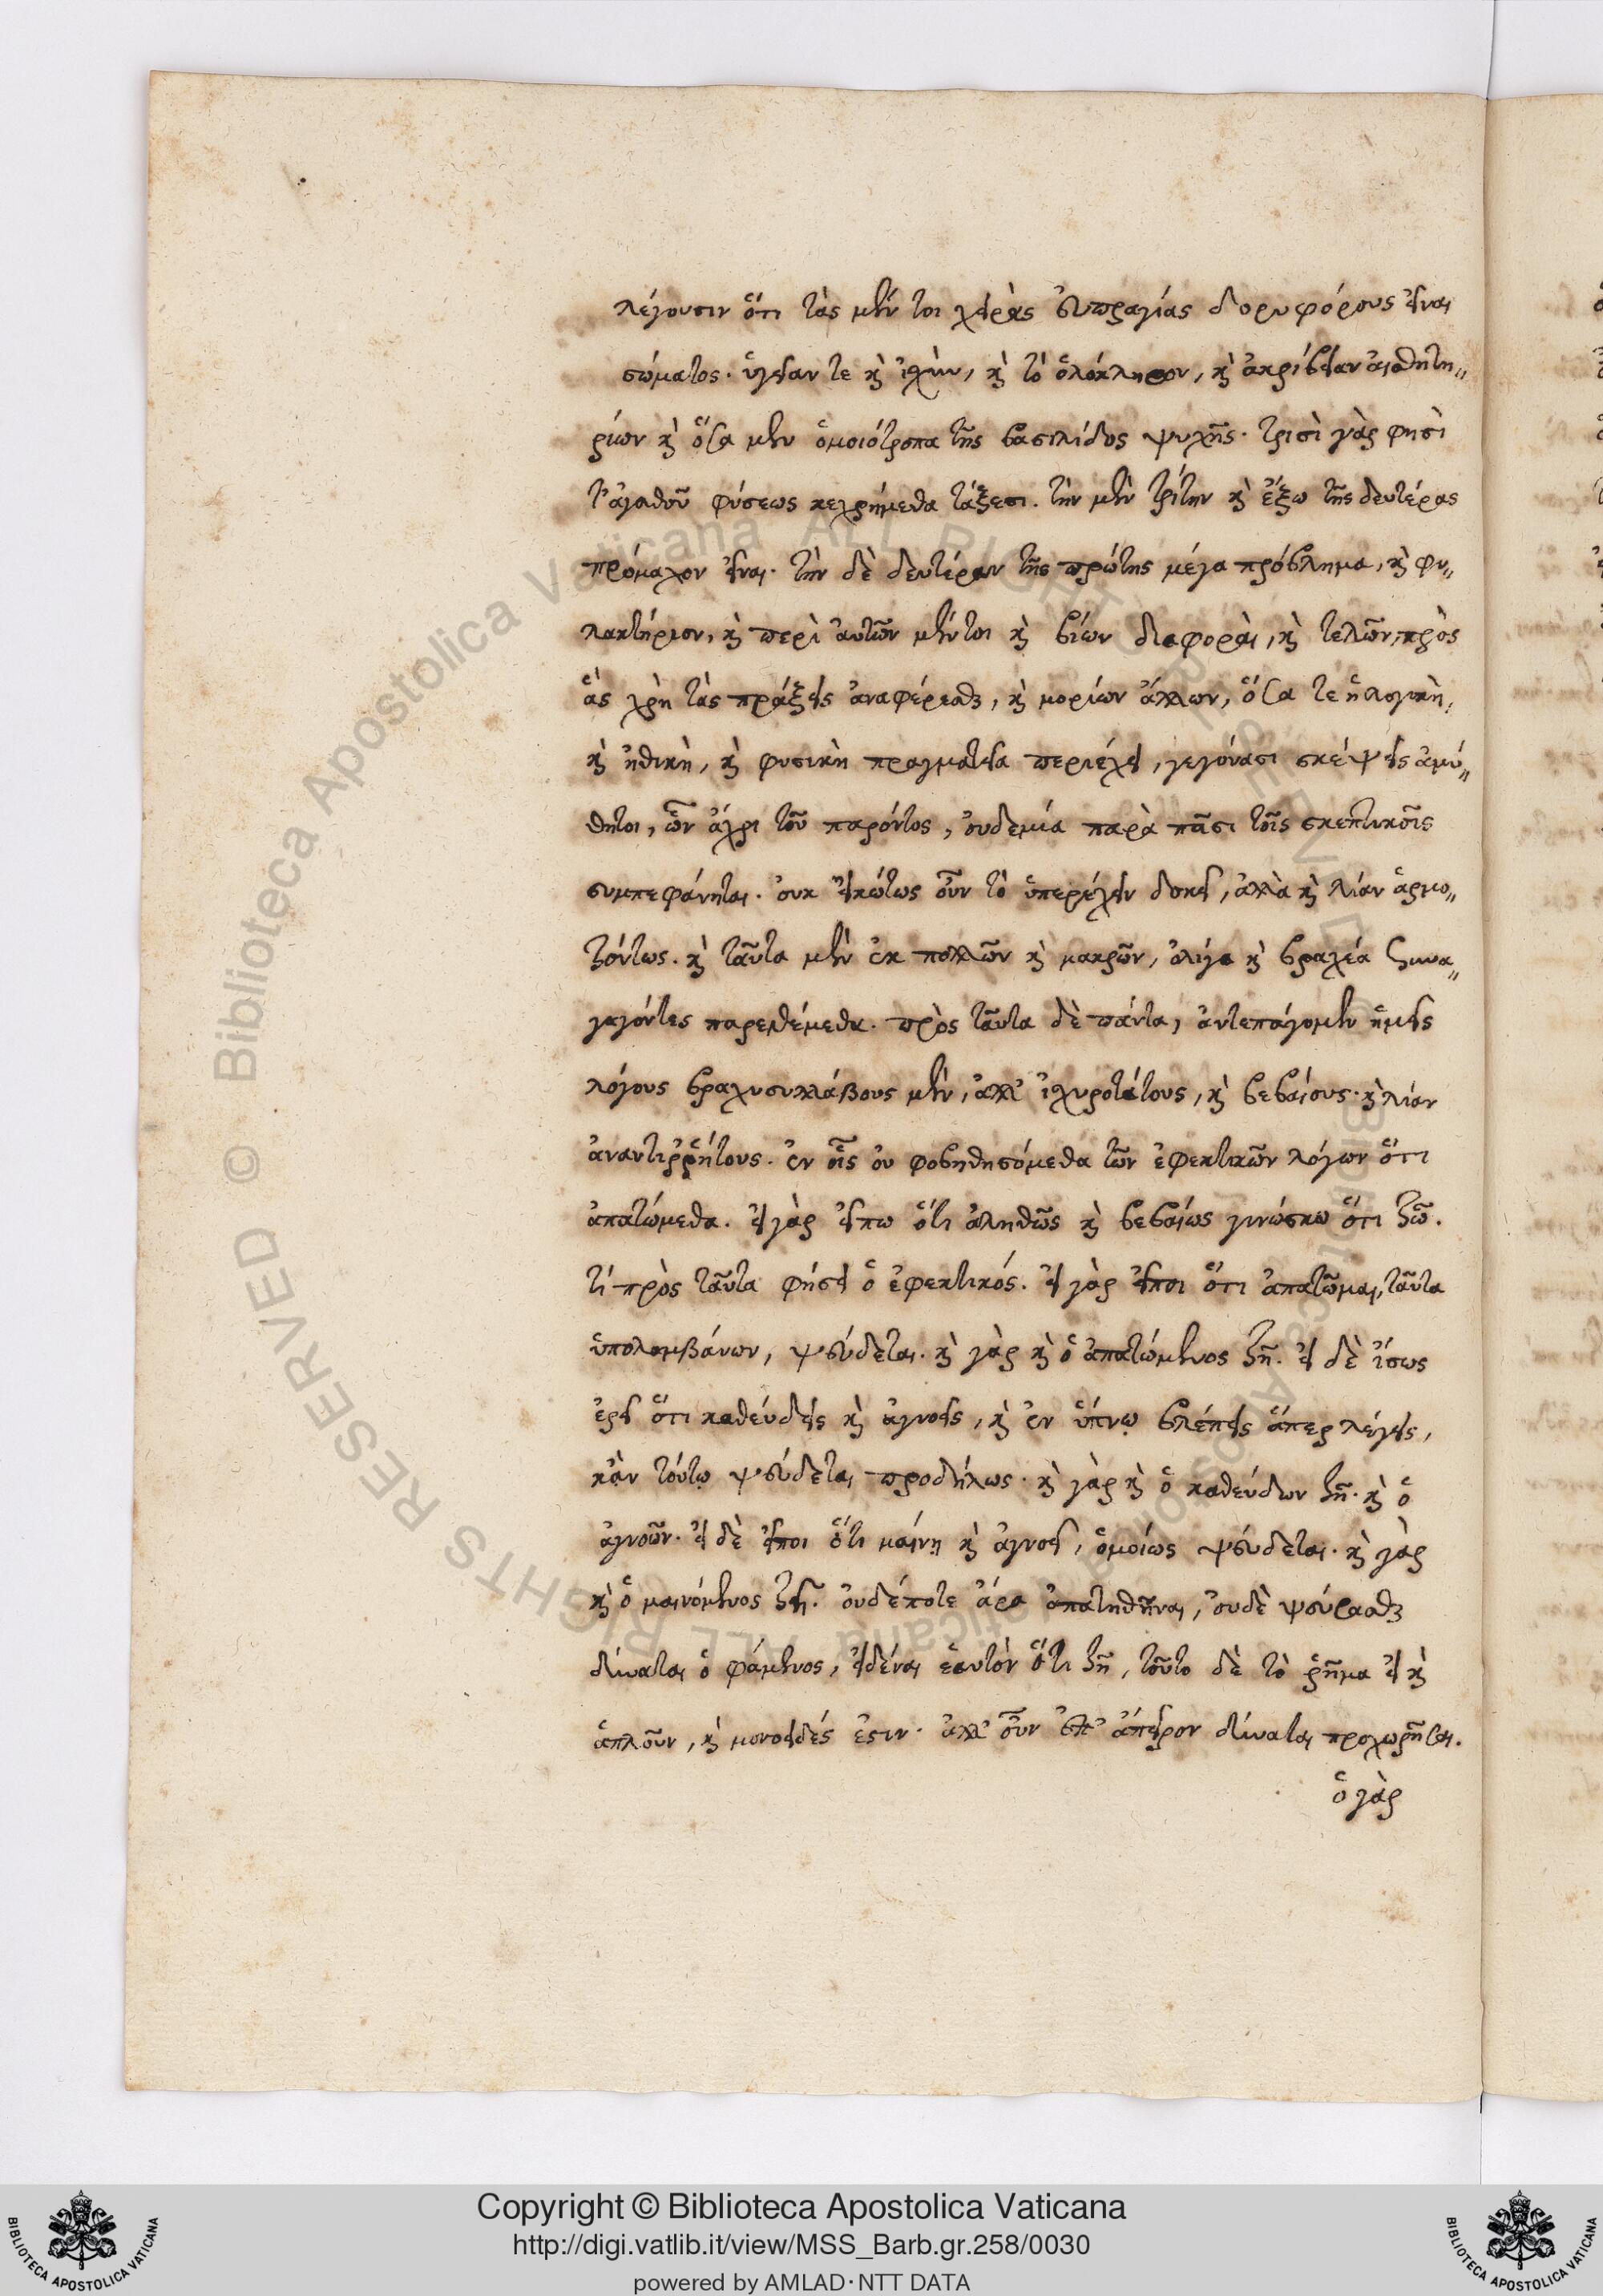 λέγουσιν ὅτι τὰς μέν τοι χεῖρὰς εὐπραγίας δορυφόρους εἶναι
σώματος. ὑγείαν τε κὴ ἰσχὺν, κὴ τὸ ὁλόκληρον, κὴ ἀκρίβειαν αἰσθητη„
ρίων κὴ ὅσα μὲν ὁμοιότροπα τῆς βασιλίδος ψυχῆς. τρισὶ γὰρ φησὶ
τ' ἀγαθοῦ φύσεως κεχρήμεθα τάξεσι. τὴν μὲν τρίτην κὴ ἔξω τῆς δευτέρας
πρόμαχον εἶναι. τὴν δὲ δευτέραν τῆς πρώτης μέγα πρόβλημα, κὴ φυ„
λακτήριον, κὴ περὶ αὐτῶν μέντοι κὴ βίων διαφορὰι, κὴ τελῶν, πρὸς
ἅς χρὴ τὰς πράξεις ἀναφέρεσθαι, κὴ μορίων ἄλλων, ὅσα τε ἡ λογικὴ,
κὴ ἠθικὴ, κὴ φυσικὴ πραγματεία περιέχει, γεγόνασι σκέψεις ἀμύ„
θητοι, ὧν ἄχρι τοῦ παρόντος, οὐδεμία παρὰ πᾶσι τοῖς σκεπτικοῖς
συμπεφώνηται. οὐκ εἰκότως οὖν τὸ ὑπερέχειν δοκεῖ, ἀλλὰ κὴ λίαν ἁρμο„
ζόντως. κὴ ταῦτα μὲν ἐκ πολλῶν κὴ μακρῶν, ὀλίγα κὴ βραχέα συνα„
γαγόντες παρεθέμεθα. πρὸς ταῦτα δὲ πάντα, ἀντεπάγομεν ἡμεῖς
λόγους βραχυσυλλάβους μὲν, ἀλλ' ἰσχυροτάτους, κὴ βεβαίους. κὴ λίαν
ἀναντιῤῥήτους. ἐν οἷς οὐ φοβηθησόμεθα τῶν ἐφεκτικῶν λόγων ὅτι
ἀπατώμεθα. εἰ γὰρ εἴπω ὅτι ἀληθῶς κὴ βεβαίως γινώσκω ὅτι ζῶ.
τί πρὸς ταῦτα φήσει ὁ ἐφεκτικός. εἰ γὰρ εἴποι ὅτι ἀπατῶμαι, ταῦτα
ὑπολαμβάνων, ψεύδεται. κὴ γὰρ κὴ ὁ ἀπατώμενος ζῇ. εἰ δὲ ἴσως
ἐρεῖ ὅτι καθεύδεις κὴ ἀγνοεῖς, κὴ ἐν ὕπνῳ βλέπεις ἅπερ λέγεις,
κᾂν τούτῳ ψεύδεται προδήλως. κὴ γὰρ κὴ ὁ καθεύδων ζῇ. κὴ ὁ
ἀγνοῶν. εἰ δὲ εἴποι ὅτι μαίνῃ κὴ ἀγνοεῖ, ὁμοίως ψεύδεται. κὴ γὰρ
κὴ ὁ μαινόμενος ζῇ. οὐδέποτε ἄρα ἀπατηθῆναι, οὐδὲ ψεύσασθαι
δύναται ὁ φάμενος, εἰδέναι ἑαυτὸν ὅτι ζῇ, τοῦτο δὲ τὸ ῥῆμα εἰ κὴ
ἁπλοῦν, κὴ μονοειδές ἐστιν. ἀλλ' οὖν ἐπ' ἄπειρον δύναται προχωρῆσαι.
ὁ γὰρ
Copyright © Biblioteca Apostolica Vaticana
http://digi.vatlib.it/view/MSS_Barb.gr.258/0030
powered by AMLAD·NTT DATA